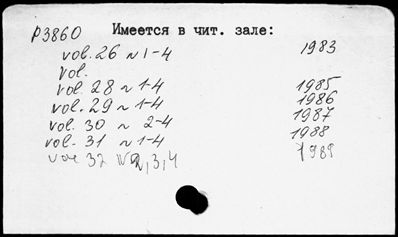 р3860 Имеется в чит. зале:
vol. 26 N 1-4 1983
vol.
vol. 28 N 1-4 1985
vol. 29 N 1-4 1986
vol. 30 N 2-4 1987
vol. 31 N 1-4 1988
vol 32 N 2,3,4 1989